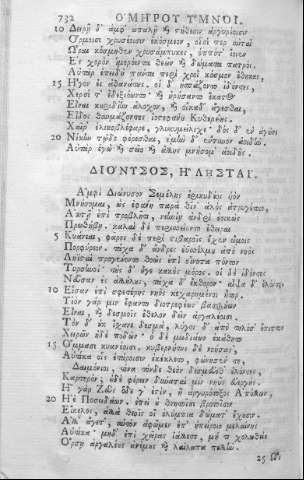 732 ὉΜΗΡΟΥ ὝΜΝΟΙ.
10 Δειρῇ δ' ἀμφ' ἁπαλῇ καὶ στήθεσιν ἀργυφέοισιν
Ὅρμοισι χρυσέοισιν ἐκόσμεον, οἷσί περ αὐταὶ
Ὧραι κοσμείσθην χρυσάμπυκες, ὁππότ' ἴοιεν
Ἐς χορὸν ἱμερόεντα θεῶν καὶ δώματα πατρός.
Αὐτὰρ ἐπειδὴ πάντα περὶ χροῒ κόσμον ἔθηκαν,
15 Ἦγον ἐς ἀθανάτους, οἱ δ' ἠσπάζοντο ἰδόντες,
Χερσί τ' ἐδεξιόωντο· καὶ ἠρήσαντο ἕκαστος
Εἶναι κουριδίην ἄλοχον, καὶ οἴκαδ' ἄγεσθαι,
Εἶδος θαυμάζοντες ἰοστεφάνου Κυθερείης.
Χαῖρ' ἑλικοβλέφαρε, γλυκυμείλιχε· δὸς δ' ἐν ἀγῶνι
20 Νίκην τῷδε φέρεσθαι, ἐμὴν δ' ἔντυνον ἀοιδήν.
Αὐτὰρ ἐγὼ καὶ σεῖο καὶ ἄλλης μνήσομ' ἀοιδῆς.
ΔΙΟΝΥΣΟΣ, Ἢ ΛΗΣΤΑΙ.
Ἀμφὶ Διώνυσον Σεμέλης ἐρικυδέος υἱὸν
Μνήσομαι, ὡς ἐφάνη παρὰ θῖν' ἁλὸς ἀτρυγέτοιο,
Ἀκτῇ ἐπὶ προβλῆτι, νεηνίῃ ἀνδρὶ ἐοικὼς
Πρωθήβῃ. καλαὶ δὲ περισσείοντο ἔθειραι
5 Κυάνεαι, φᾶρος δὲ περὶ στιβαροῖς ἔχεν ὤμοις
Πορφύρεον. τάχα δ' ἄνδρες ἐυσσέλμου ἀπὸ νηὸς
Ληϊσταὶ προγένοντο θοῶς ἐπὶ οἴνοπα πόντον
Τυρσηνοί· τοὺς δ' ἦγε κακὸς μόρος. οἱ δὲ ἰδόντες
Νεῦσαν ἐς ἀλλήλους· τάχα δ' ἔκθορον· αἶψα δ' ἑλόντες
10 Εἷσαν ἐπὶ σφετέρης νηὸς κεχαρημένοι ἦτορ.
Υἱὸν γάρ μιν ἔφαντο διοτρεφέων βασιλήων
Εἶναι, καὶ δεσμοῖς ἔθελον δεῖν ἀργαλέοισι.
Τὸν δ' οὐκ ἴσχανε δεσμὰ, λύγοι δ' ἀπὸ τηλόσ' ἔπιπτον
Χειρῶν ἠδὲ ποδῶν· ὁ δὲ μειδιάων ἐκάθητο
15 Ὄμμασι κυανέοισι. κυβερνήτης δὲ νοήσας,
Αὐτίκα οἷς ἑτάροισιν ἐκέκλετο, φώνησέν τε,
Δαιμόνιοι, τίνα τόνδε θεὸν δεσμεύεθ' ἑλόντες,
Καρτερόν; οὐδὲ φέρειν δύναταί μιν νηῦς εὐεργής.
Ἢ γὰρ Ζεὺς ὅδε γ' ἐστὶν, ἢ ἀργυρότοξος Ἀπόλλων,
20 Ἠὲ Ποσειδάων, ἐπεὶ οὐ θνητοῖσι βροτοῖσιν
Εἴκελος, ἀλλὰ θεοῖς οἳ ὀλύμπια δώματ' ἔχουσι.
Ἀλλ' ἄγετ', αὐτὸν ἀφῶμεν ἐπ' ἠπείροιο μελαίνης
Αὐτίκα· μηδ' ἐπὶ χεῖρας ἰάλλετε, μή τι χολωθεὶς
Ὄρσῃ ἀργαλέους ἀνέμους καὶ λαίλαπα πολλήν.
25 Ὣς